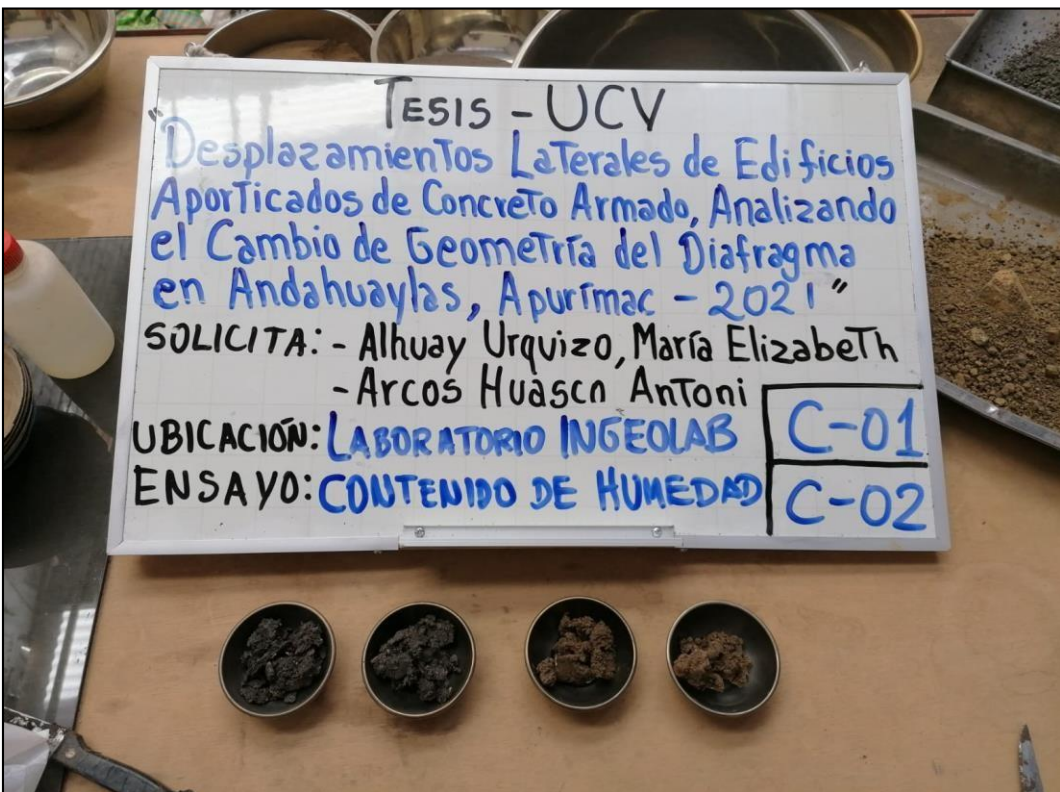 TESIS - UCV
"Desplazamientos Laterales de Edificios
Aporticados de Concreto Armado, Analizando
el Cambio de Geometría del Diafragma
en Andahuaylas, Apurímac - 2021"
SOLICITA: - Alhuay Urquizo, María Elizabeth
- Arcos Huasco Antoni
UBICACIÓN: LABORATORIO INGEOLAB
C-01
ENSAYO: CONTENIDO DE HUMEDAD
C-02